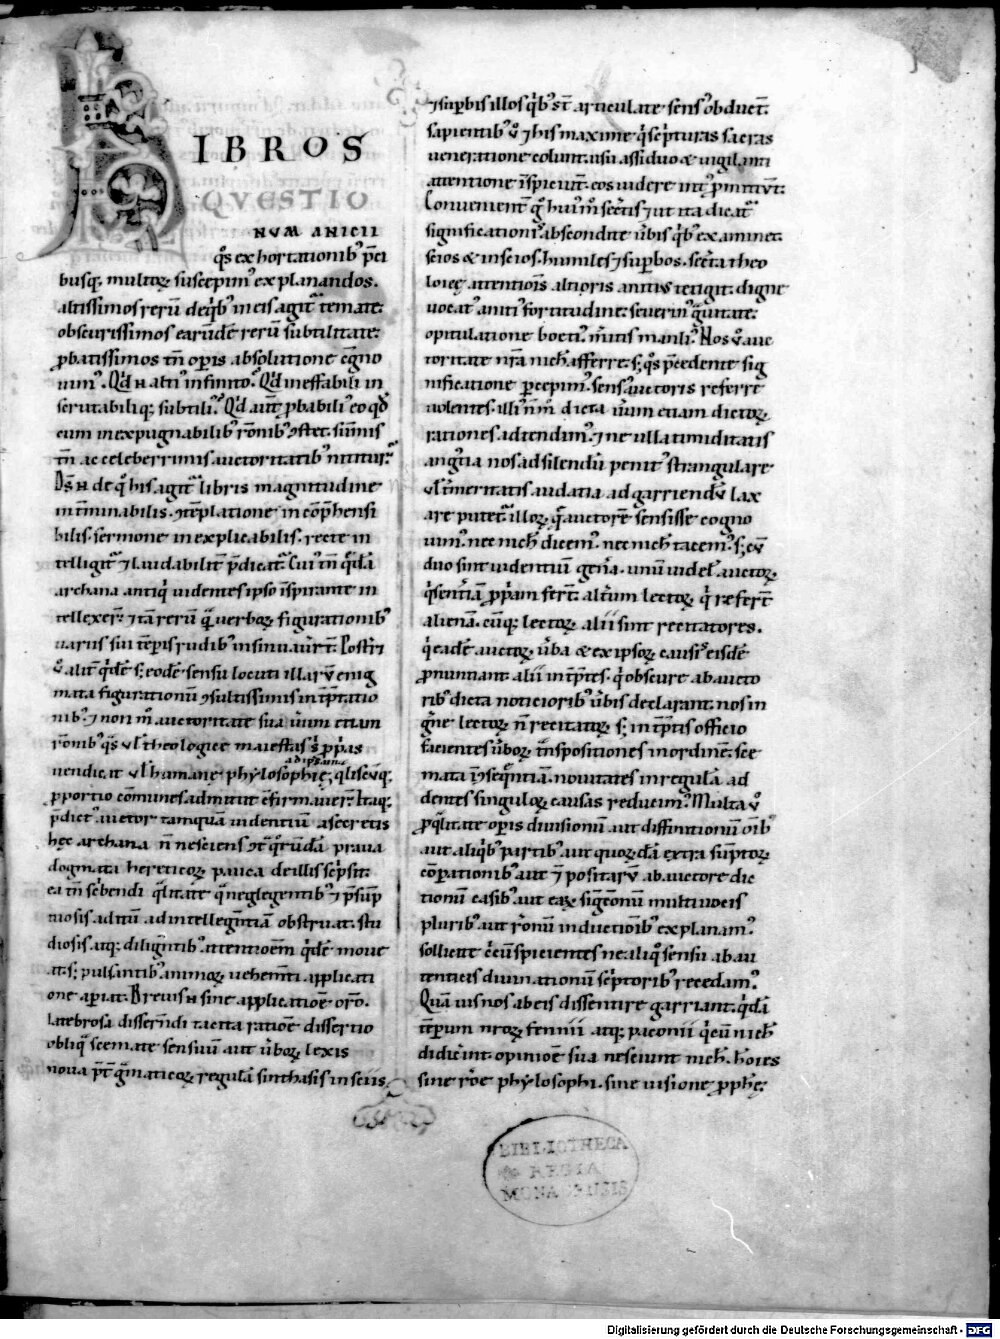 LIBROS
QVESTIO
NVM ANICII
q̄s exhortationib' p̄ci
busq; multoꝝ suscepim' explanandos.
altissimos rerū de q̇b' in eis agit᷑ temate.
obscurissimos earūdē rerū subtilitate.
ꝓbatissimos tn̄ oꝑis absolutione cḡno
uim'. Qd̄ alti' infinito. Qd̄ ineffabili in
scrutabiliq; subtili'. Qd̄ aut̄ ꝓbabili' eo qd̄
cum inexpugnabilib' rōnib' ꝯstet. sūmis
tn̄ ac celeberrimis auctoritatib' nititur.
de q̇ his agit᷑ libris magnitudine
int̄minabilis. ꝯtēplatione incōp̄hensi
bilis. sermone inexplicabilis. recte in
telligit᷑ ⁊ laudabilit̄ p̄dicat᷑. Cui' tn̄ q̄dā
archana antiq̇ uidentes ipso īspirante in
tellexer̄. ⁊ tā rerū q̄ uerboꝝ figurationib'
uarus sui tēpis rudib' insinuauert̄. Posṫi
u° alit̄ q̇dē s; eodē sensu locuti illarū enig
mata figurationū ꝯsultissimis int̄p̄tatio
nib'. ⁊ non m° auctoritate sua uerum etiam
rōnib' q̄s ul̄ theologice maiestas s; ꝓp̄as
uendicat ul̄ humane phylosophię; q̄lisc̄uq;
ꝓportio cōmunes admittit cōfirmauer̄. Itaq;
p̄dict' auctor tamquā uidentiū a secretis
hęc archana n̄ nesciens ꝯt̄ q̇rūdā praua
dogmata hereticoꝝ pauca de illis sc̄psit.
ea tn̄ sc̄bendi q̄litate q̄ neglegentib' ⁊ p̄sūp
tuosis aditū ad intellegn̄tiā obstruat. stu
diosis atq; diligntib' attentōem q̇dē moue
at. s; pulsantib' animoꝝ uehemēti applicati
one aꝑiat. Breuis n̄ sine applicatiōe orō.
latebrosa disserndi tacita ratiōe dissertio
obliq° scemate sensuū aut ūboꝝ lexis
noua p̄t gm̄aticoꝝ regulā sinthasis insciis
⁊ suꝑbis illos q̇b' st̄ articulate sens' obduct̄.
sapientib' u° ⁊ his maxime q̇ sc̄pturas sacras
ueneratione colunt. usu assiduo & uigilanti
attentione īspiciunt̄. eos uidere int̄' ꝓmittūt;
Conuenient̄ g° hui'm° sec̄tis ⁊ ut ita dicat᷑
significationū absconditę ūbis q̇b' examinet.
scios & inscios. humiles ⁊ suꝑbos. sec̄ta theo
loięę attentiōis altioris anitus tetigit. digne
uocat' aniti fortitudine. seuerin' q̄uitate.
opitulatione boeti'. mītis manli'. Nos u° auc
toritate nr̄a nich̄ afferre. s; q̄s p̄cedente sig
nificatione ꝑcepim' sens' auctoris referre
uolentes. illi' nm̄ dicta ūum etiam dictoꝝ
rationes adtendim'. ⁊ ne ulla timiditatis
angr̄ia nos ad silendū penit' strangulare
ul̄ t̄meritatis audatia ad garriendū lax
are putet᷑ illoꝝ. q̄ auctorē sensisse cogno
uim'. nec nich̄ dicem'. nec nich̄ tacem'. s; cū
duo sint uidentiū gen̄a. unū uidel̄. auctoꝝ
q̇ sn̄tiā ꝓp̄am fert̄. alt̄um lectoꝝ. q̇ refert̄
alienā. cūq; lectoꝝ. alii sint recitatores.
q̇ eadē auctoꝝ. ūba & ex ipsoꝝ causis eisdē
ꝓnuntiant. alii int̄p̄tes. q̇ obscure ab aucto
rib' dicta noticiorib' ūbis declarant. nos in
gn̄e lectoꝝ n̄ recitatoꝝ. s; int̄p̄tis officio
facientes ūboꝝ t̄nspositiones in ordinē. sce
mata ꝯseq̄ntiā. nouitates in regulā. ad
dentes singuloꝝ causas reducim'. Multa u°
ꝓ q̄litate oꝑis diuisionū aut diffinitionū ōib'
aut aliq̇b' partib' aut quoꝝdā extra sūptoꝝ
cōꝑationib' aut ī positarū ab auctore dic
tionū casib' aut eaꝝ sign̄cōnū multiuocis
pluribus aut rōnū inductiōib' explanam'.
sollicite c̄cūspicientes ne aliq° sensu ab au
tenticis diuinationū sc̄ptorib' recedam'.
Quā uis nos ab eis dissentire garriant q̇dā
tēporum nr̄oꝝ fennii atq; paconii q̇ cū nich̄
didic̄int. opiniōe sua nesciunt nich̄. hōies
sine rōe phylosophi. sine uisione ꝓphę;
BIBLIOTHECA
REGIA
MONACENSIS
Digitalisierung gefördert durch die Deutsche Forschungsgemeinschaft - DFG